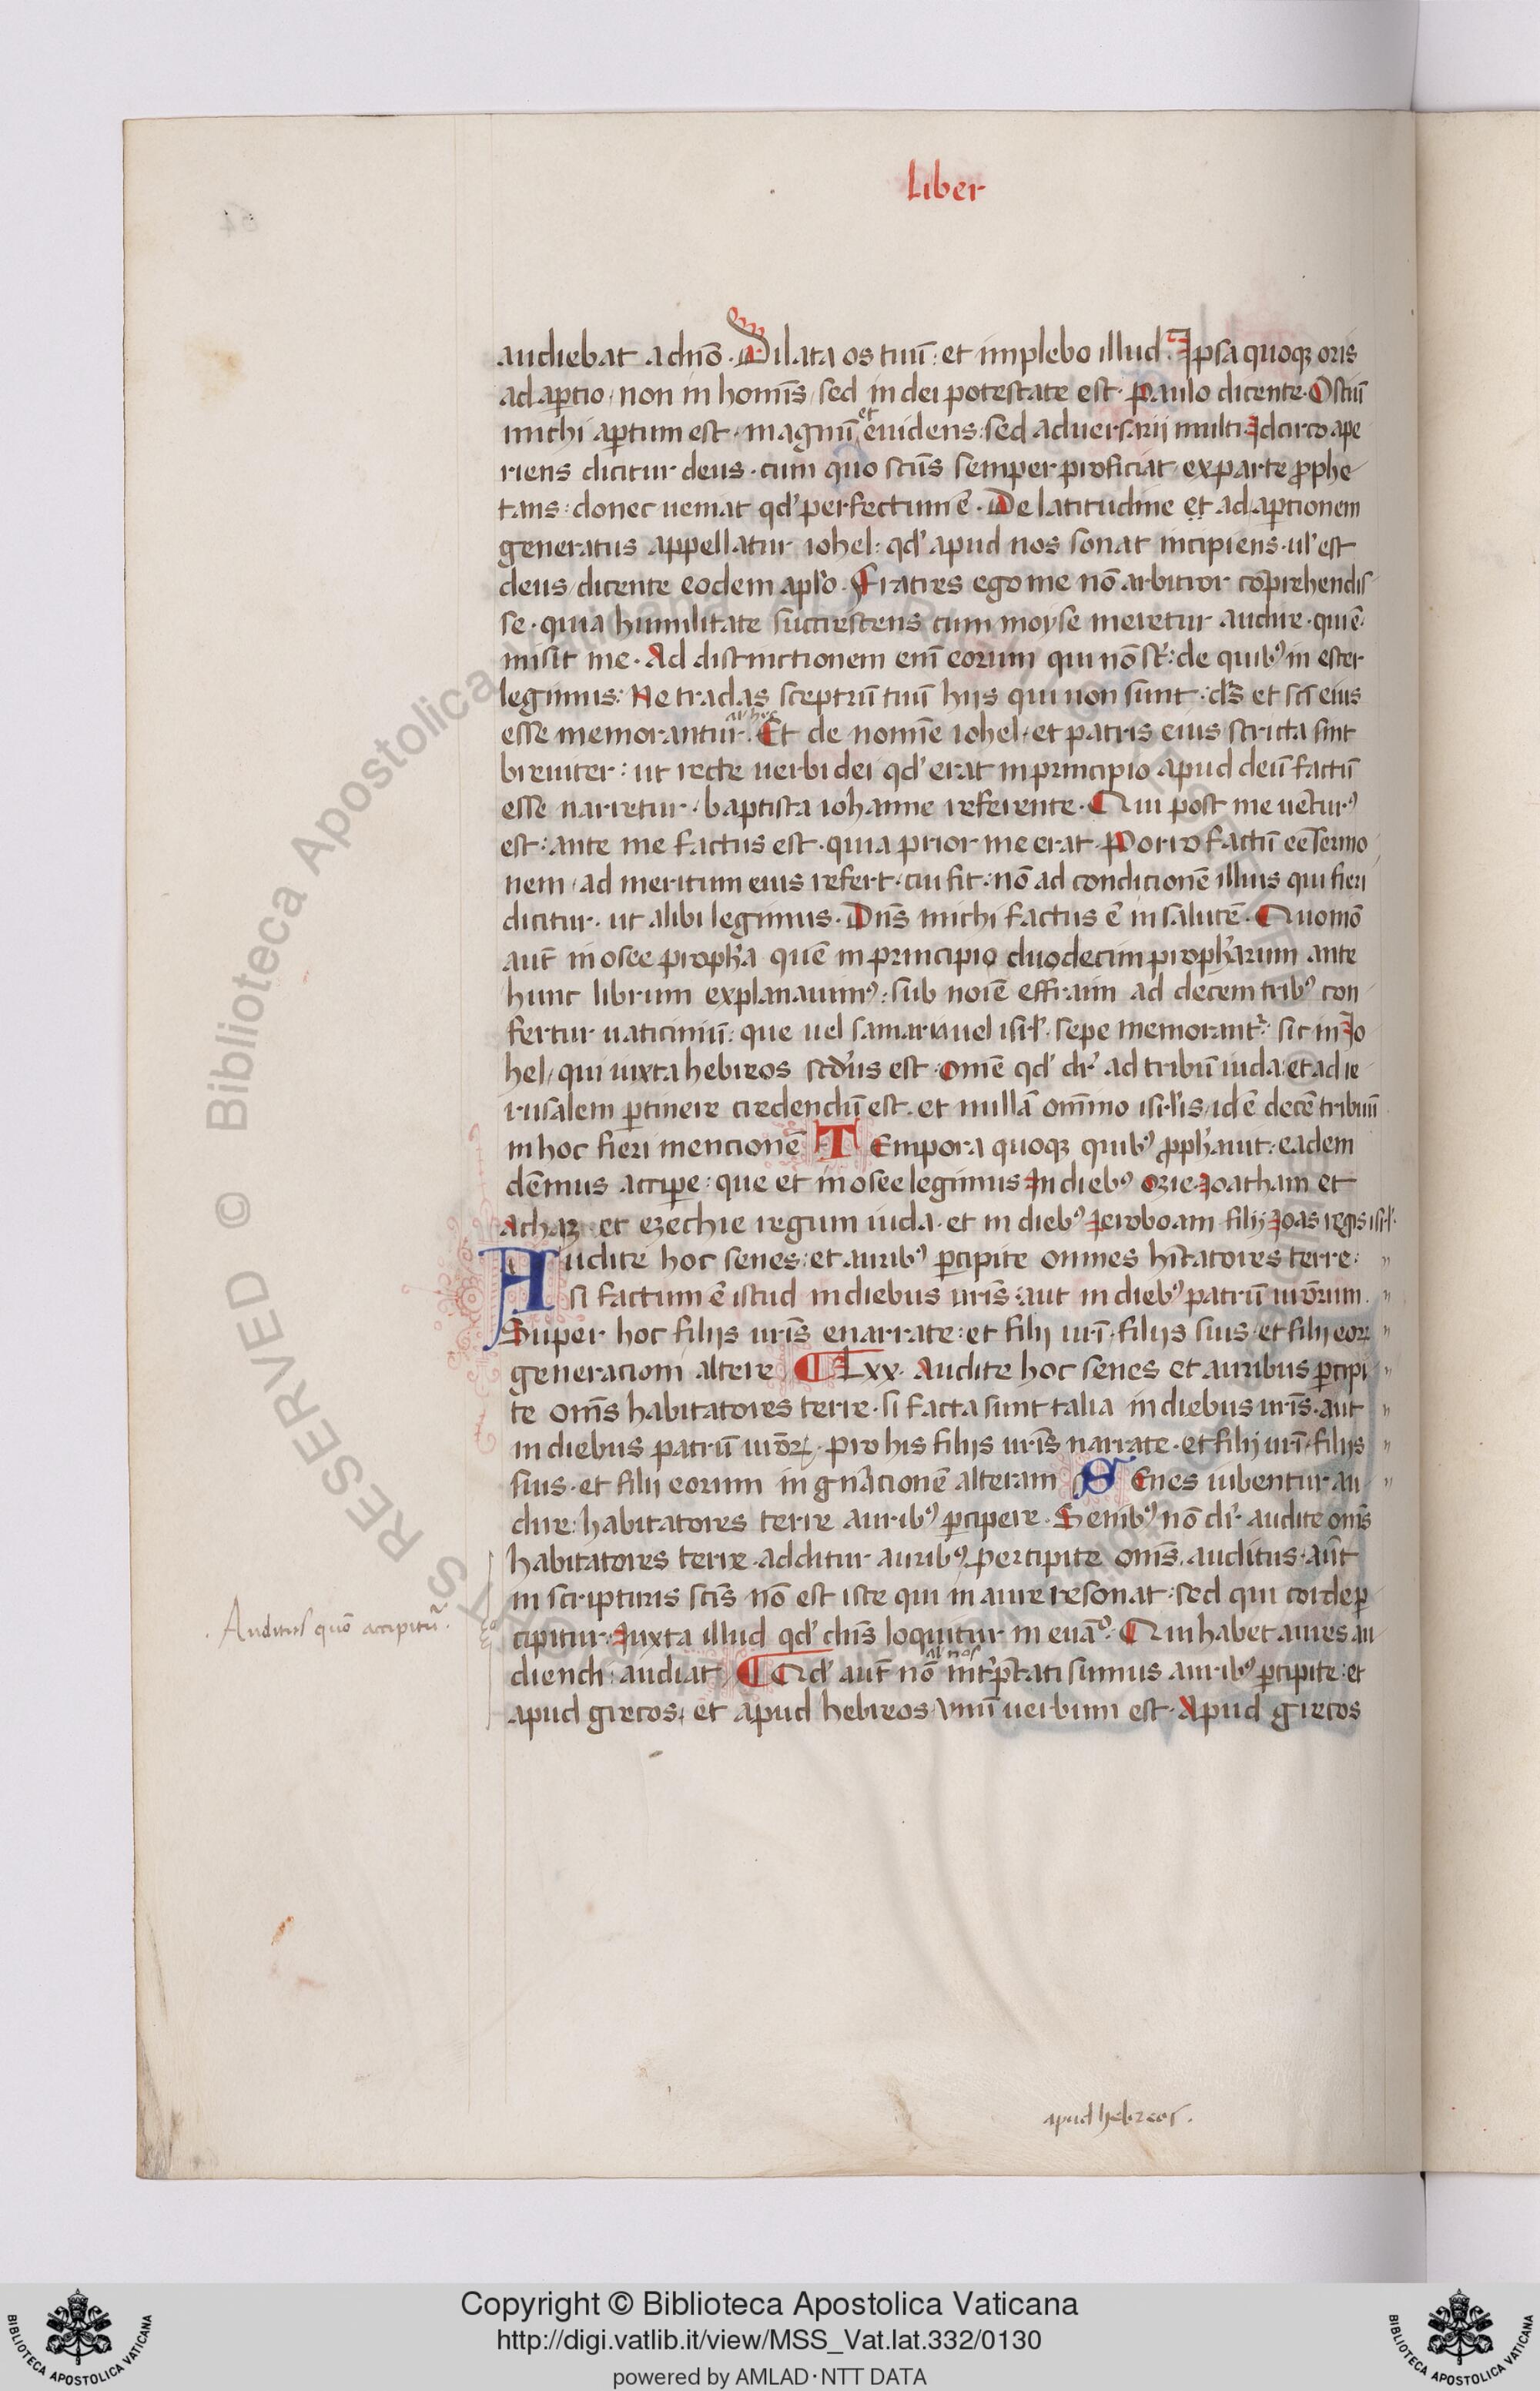 Liber
audiebat a dnō. Dilata os tuū: et implebo illud. Ipsa quoqꝫ oris
adaꝑtio, non in homīs, sed in dei potestate est. Paulo dicente. Ostiū
michi aꝑtum est, magnū et euidens: sed aduersarij multi. Idcirco ape
riens dicitur deus. cum quo scūs semper proficiat ex parte ꝓphe
tans: donec ueniat qd' perfectum ē. De latitudine et adaꝑtionem
generatus appellatur iohel: qd' apud nos sonat incipiens. ul' est
deus, dicente eodem aplo. Fratres ego me nō arbitror cōprehendis
se. quia humilitate succrescens cum moyse meretur audire. qui ē.
misit me. Ad distinctionem enī eorum qui nō st̄: de quibꝰ in ester
legimus: Ne tradas sceptrū tuū hijs qui non sunt: ds̄ et scī eius
esse memorantur. Et de nomīe iohel, et patris eius stricta sint
al' hec
breuiter: ut recte uerbi dei qd' erat in principio apud deū factū
esse narretur. baptista iohanne referente. Qui post me uēturꝰ
est: ante me factus est. quia prior me erat. Porro factū eē sermo
nem, ad meritum eius refert. cui fit. nō ad condicionē illius qui fieri
dicitur. ut alibi legimus. Dn̄s michi factus ē in salutē. Quomō
aut̄ in osee proph̄a quē in principio duodecim proph̄arum ante
hunc librum explanauimꝰ: sub noīe effraim ad decem tribꝰ con
fertur uaticiniū: que uel samaria uel isrl'. sepe memorantᷣ: sic in Jo
hel, qui iuxta hebreos scd'us est. omē qd' dr̄ ad tribū iuda: et ad ie
rusalem ꝑtinere credendū est. et nullā ommo isrl'is, id ē decē tribuū
in hoc fieri mencionē. Tempora quoqꝫ quibꝰ ꝓph'auit: eadem
dēmus accipe: que et in osee legimus. In diebꝰ ozie. Joatham et
Achaz. et ezechie regum iuda. et in diebꝰ Jeroboam filij Joas regis isrl'.
Audite hoc senes: et auribꝰ ꝑcipite omnes hītatores terre:
si factum ē istud in diebus ur̄is: aut in diebꝰ patrū uōrum.
Super hoc filijs ur̄is enarrate: et filij ur̄i. filijs suis. et filij eoꝝ
generacioni altere. Lxx. Audite hoc senes et auribus ꝑcipi
te om̄s habitatores terre. si facta sunt talia in diebus ur̄is. aut
in diebus patrū uōꝝ. pro his filijs ur̄is narrate. et filij ur̄i. filijs
suis. et filij eorum in gn̄acionē alteram. Senes iubentur au
dire: habitatores terre auribꝰ ꝑcipere. Senibꝰ nō dr̄. audite om̄s
habitatores terre. additur auribꝰ percipite om̄s. auditus. aūt
in scripturis scīs nō est iste qui in aure resonat. sed qui corde ꝑ
cipitur. Juxta illud qd' dn̄s loquitur in euāº. Qui habet aures au
Auditus quō accipitur.
diendi: audiat. Qd' aut̄ nō int̄ꝑtati sumus auribꝰ ꝑcipite: et
al' nos
apud grecos, et apud hebreos, vnū uerbum est. Apud grecos
apud hebreos.
Copyright © Biblioteca Apostolica Vaticana
http://digi.vatlib.it/view/MSS_Vat.lat.332/0130
powered by AMLAD·NTT DATA